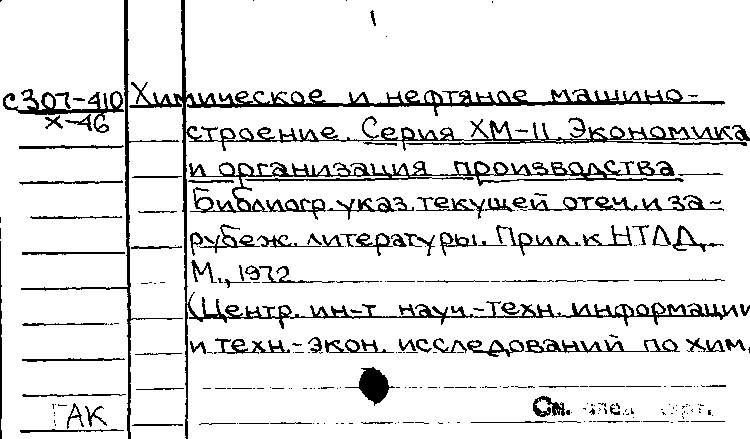 1
с307-410 Химическое и нефтяное машино-
х-46
строение. Серия ХМ-11. Экономика
и организация производства.
Библиогр. указ. текущей отеч. и за-
рубеж. литературы. Прил. к НТЛД.
М., 1972
(Центр. ин-т науч.-техн. информации
и техн.-экон. исследований по хим.
ГАК
См. след. карт.